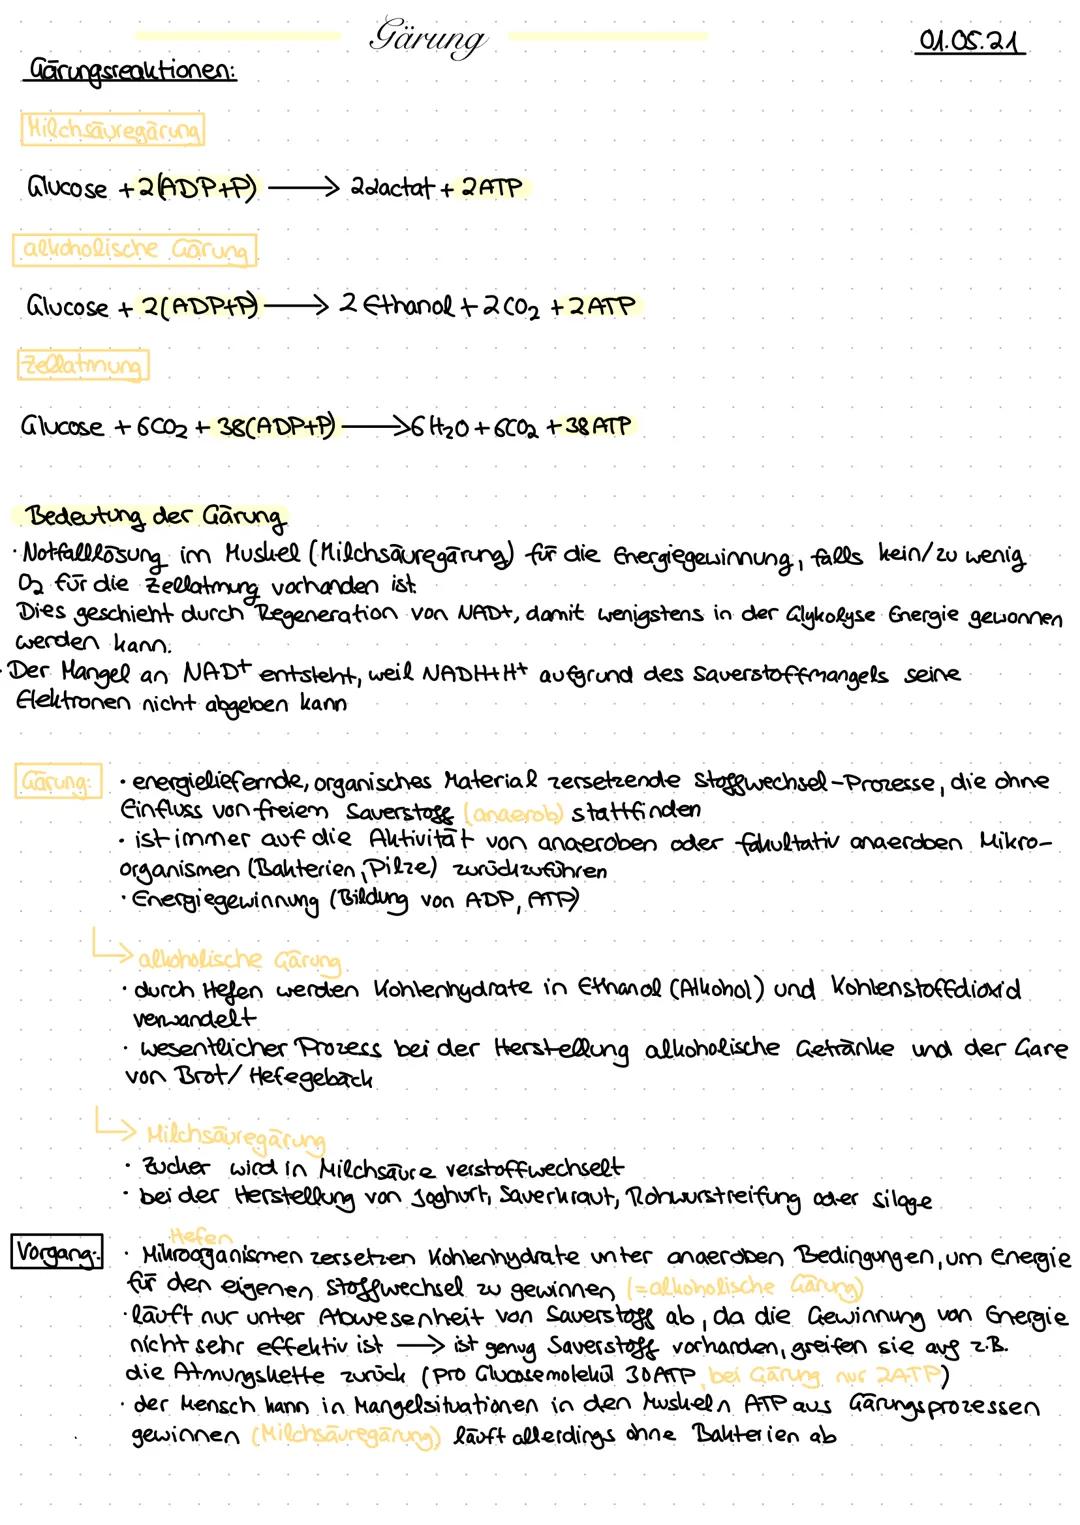 Gärung
01.05.21
Gärungsreaktionen:
Milchsäuregärung
Glucose + 2(ADP+P) → 2 Lactat + 2 ATP
alkoholische Gärung
Glucose + 2(ADP+P) → 2 Ethanol + 2 CO₂ + 2 ATP
Zellatmung
Glucose + 6 CO₂ + 38(ADP+P) → 6 H₂O + 6 CO₂ + 38 ATP
Bedeutung der Gärung
· Notfalllösung im Muskel (Milchsäuregärung) für die Energiegewinnung, falls kein/zu wenig
O₂ für die Zellatmung vorhanden ist.
Dies geschieht durch Regeneration von NAD+, damit wenigstens in der Glykolyse Energie gewonnen
werden kann.
· Der Mangel an NAD+ entsteht, weil NADH+H+ aufgrund des Sauerstoffmangels seine
Elektronen nicht abgeben kann
Gärung: · energieliefernde, organisches Material zersetzende Stoffwechsel-Prozesse, die ohne
Einfluss von freiem Sauerstoff (anaerob) stattfinden
· ist immer auf die Aktivität von anaeroben oder fakultativ anaeroben Mikro-
organismen (Bakterien, Pilze) zurückzuführen
· Energiegewinnung (Bildung von ADP, ATP)
↳ alkoholische Gärung
· durch Hefen werden Kohlenhydrate in Ethanol (Alkohol) und Kohlenstoffdioxid
verwandelt
· wesentlicher Prozess bei der Herstellung alkoholische Getränke und der Gare
von Brot/Hefegebäck
↳ Milchsäuregärung
· Zucker wird in Milchsäure verstoffwechselt
· bei der Herstellung von Joghurt, Sauerkraut, Rohwurstreifung oder Silage
Hefen
Vorgang: · Mikroorganismen zersetzen Kohlenhydrate unter anaeroben Bedingungen, um Energie
für den eigenen Stoffwechsel zu gewinnen (=alkoholische Gärung)
· läuft nur unter Abwesenheit von Sauerstoff ab, da die Gewinnung von Energie
nicht sehr effektiv ist → ist genug Sauerstoff vorhanden, greifen sie auf z.B.
die Atmungskette zurück (pro Glucosemolekül 30 ATP, bei Gärung nur 2 ATP)
· der Mensch kann in Mangelsituationen in den Muskeln ATP aus Gärungsprozessen
gewinnen (Milchsäuregärung) läuft allerdings ohne Bakterien ab